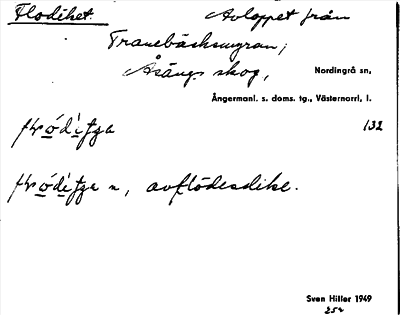 Flodiket. Avloppet från
Tranebäcksmyran,
Åsängs skog, Nordingrå sn,
Ångermanl. s. doms. tg., Västernorrl. l.
132
n, avflödesdike.
Sven Hiller 1949
252